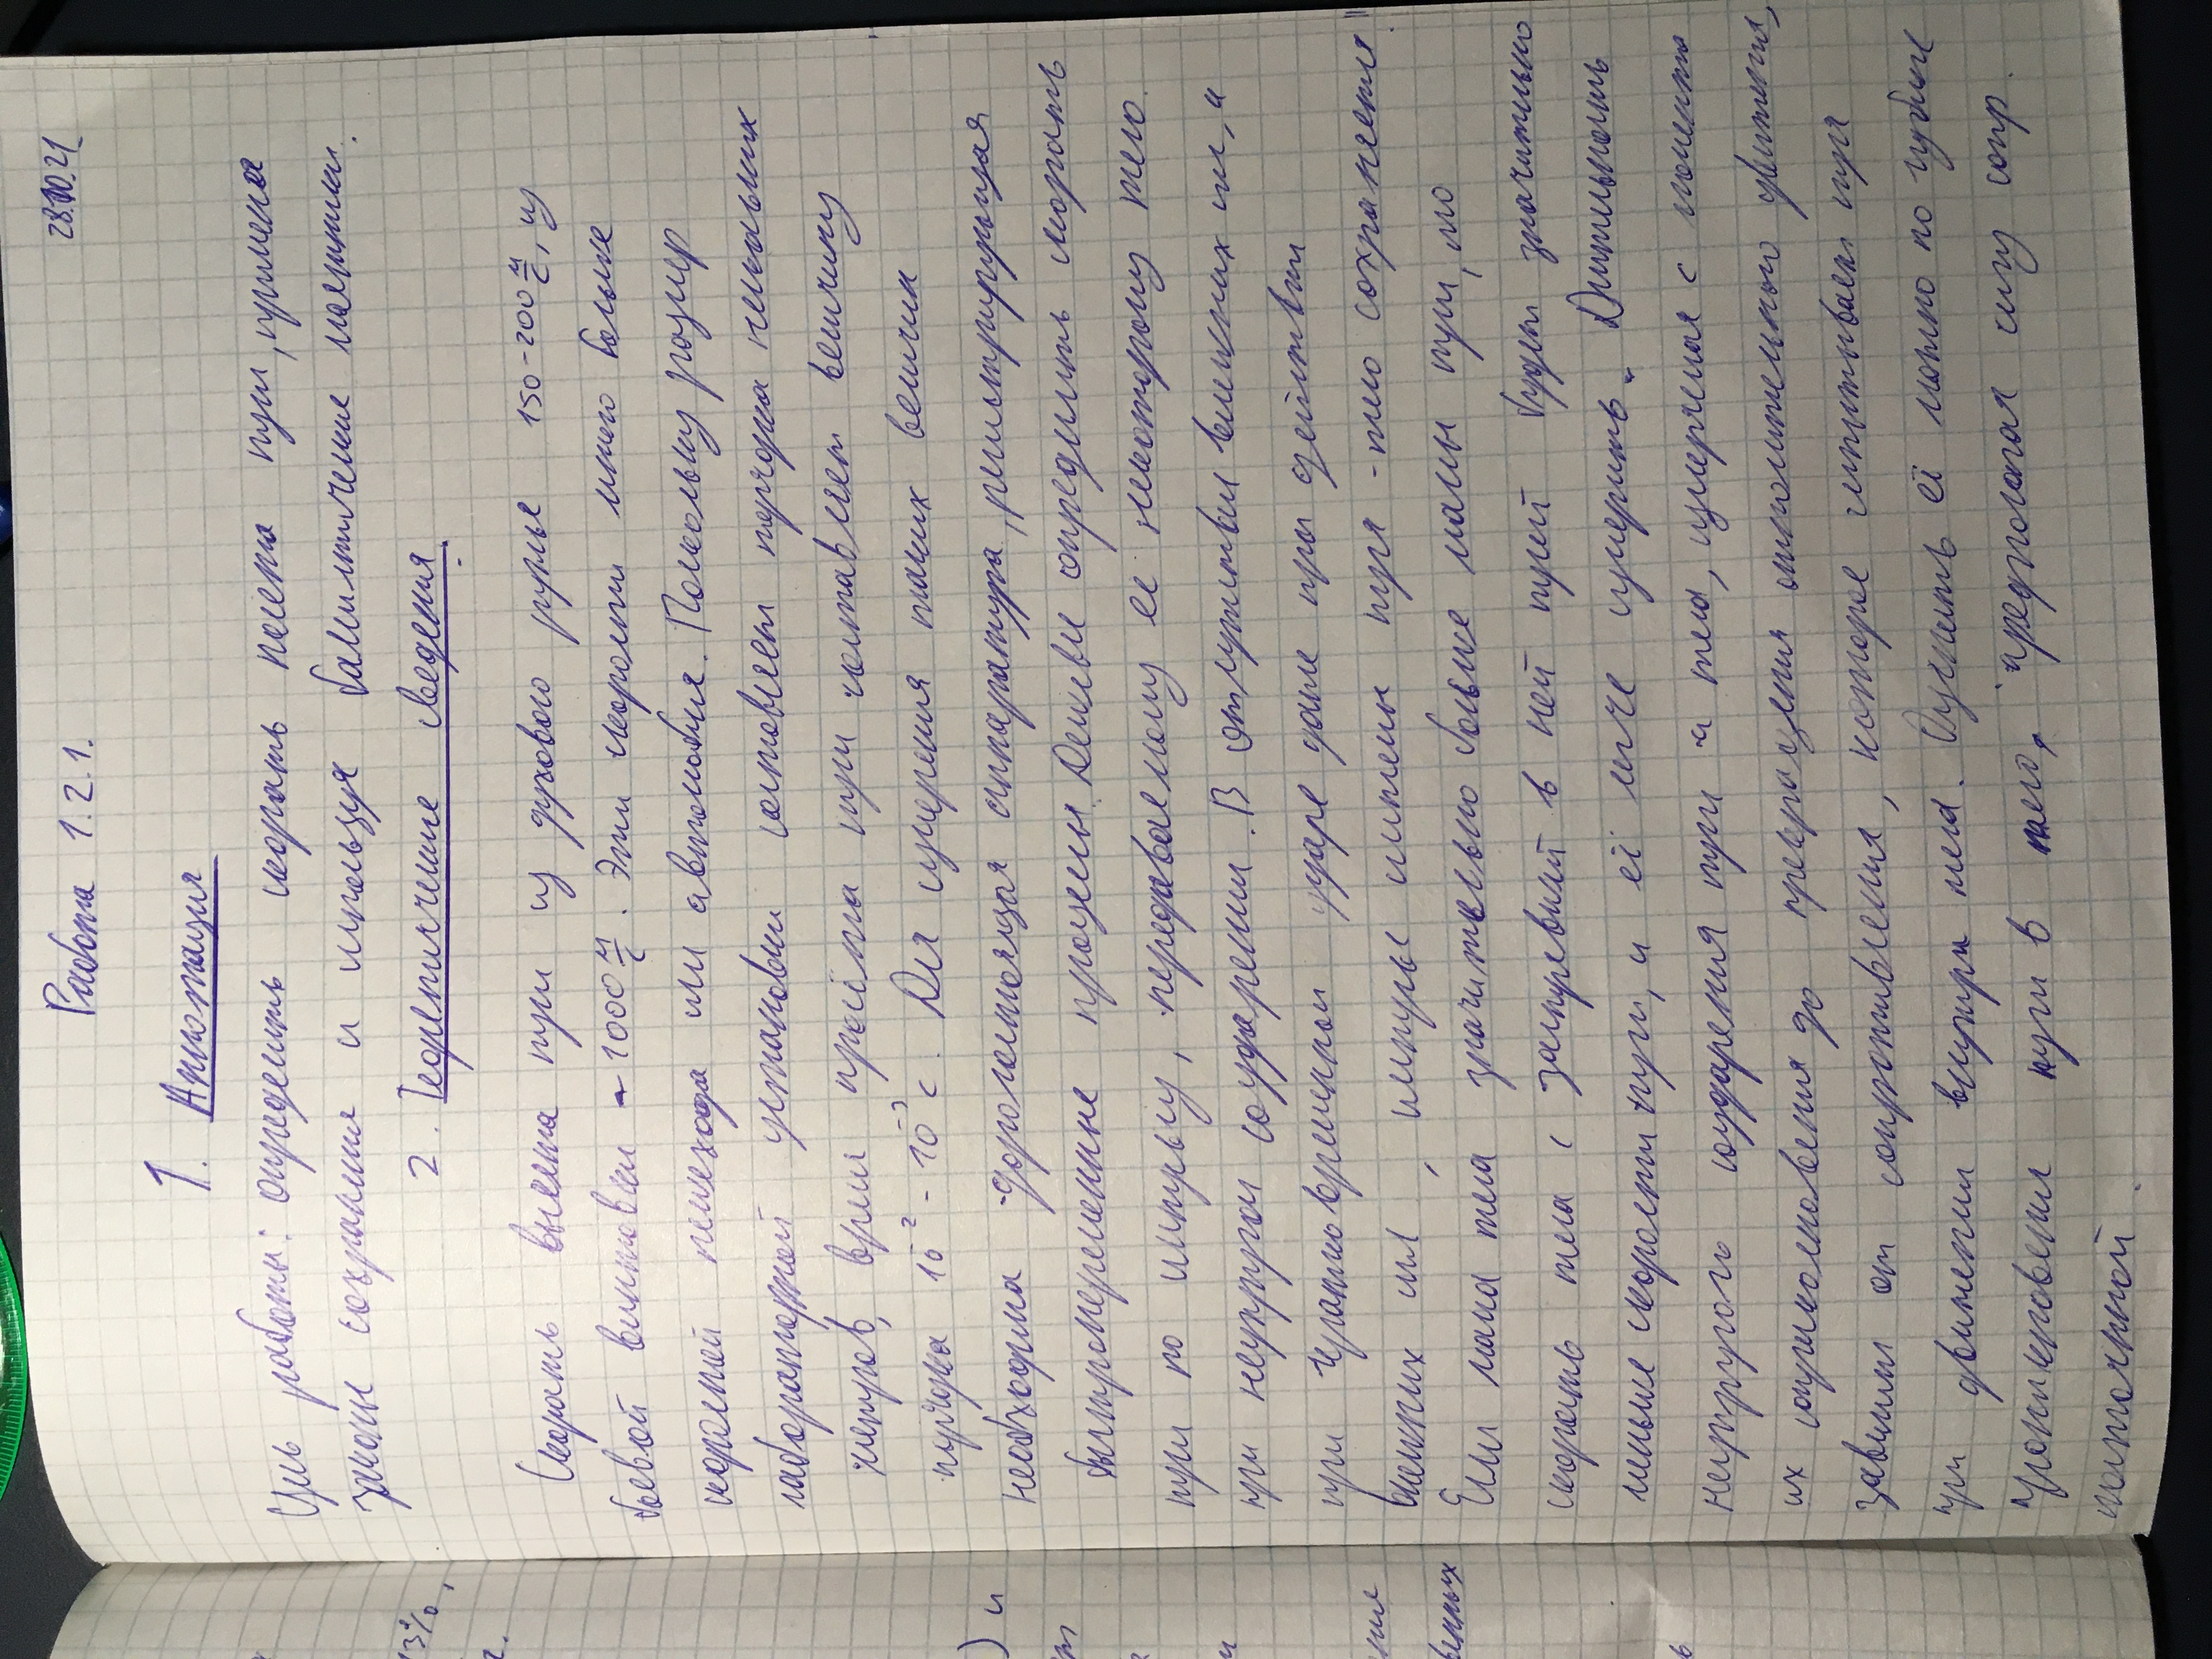 Работа 1.2.1.
28.10.21
1. Аннотация
Цель работы: определить скорость полета пули, применяя
законы сохранения и используя баллистические маятники.
2. Теоретические сведения.
Скорость вылета пули из духового ружья 150-200 м/с, из
боевой винтовки ~ 1000 м/с. Эти скорости много больше
скоростей пешехода или автомобиля. Поскольку размер
лабораторной установки составляет порядка нескольких
метров, время пролёта пули составляет величину
порядка 10⁻² - 10⁻³ с. Для измерения таких величин
необходима дорогостоящая аппаратура, регистрирующая
быстропеременные процессы. Дешевле определить скорость
пули по импульсу, передаваемому ее некоторому тело.
при неупругом соударении. В отсутствии внешних сил, и
при кратковременном ударе даже при действии
внешних сил, импульс системы пуля - тело сохраняется!!
Если масса тела значительно больше массы пули, то
скорость тела с застрявшей в ней пулей будет значительно
меньше скорости пули, и её легче измерить. Длительность
неупругого соударения пули и тела, измеряемая с момента
их соприкосновения до прекращения относительного движения,
зависит от сопротивления, которое испытывает пуля
при движении внутри тела. Оценить её можно по глубине
проникновения пули в тело, предполагая силу сопр.
постоянной.
13%,
) и
ения
венных